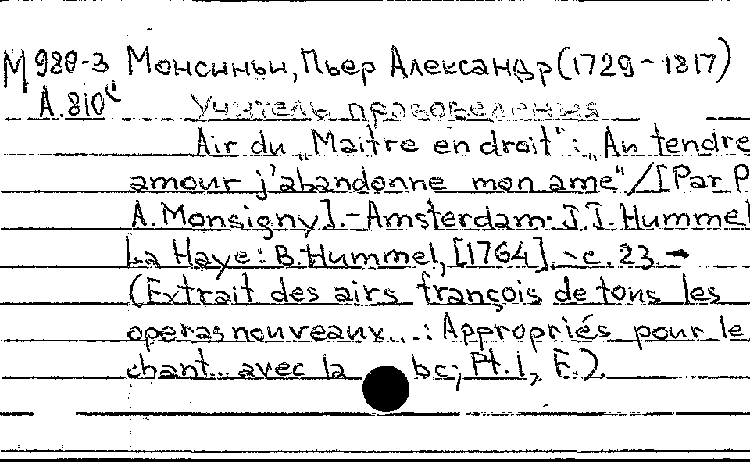 М 980-3 Монсиньи, Пьер Александр (1729-1817)
А.810" Учитель правоведения
Air du „Maitre en droit“: „Au tendre
amour j'abandonne mon ame“/[Par P.
A. Monsigny].-Amsterdam: J.J. Hummel
La Haye: B. Hummel, [1764].-c. 23.-
(Extrait des airs françois de tous les
operas nouveaux...: Appropriés pour le
chant... avec la bc; Pt. 1, F.).